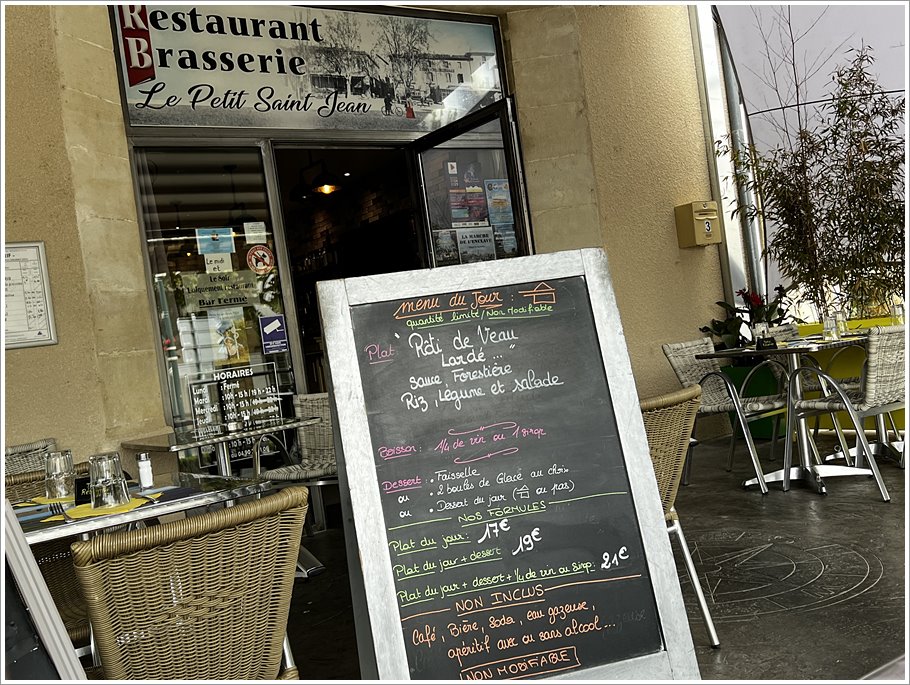 Restaurant
Brasserie
Le Petit Saint Jean
LA MARCHE
DE L'ENCLAVE
3
Le midi
et
Le Soir
Uniquement restaurant
Bar Fermé
HORAIRES
Lundi : Fermé
Mardi : 10h - 15h
Mercredi : 10h - 15h
Jeudi
menu du Jour :
quantité limité / Non Modifiable
Plat " Rôti de Veau
Lardé ... "
sauce, Forestière
Riz, Légume et salade
Boisson : 1/4 de vin ou 1 sirop
Dessert : . Faisselle
ou . 2 boules de Glace au choix
ou . Dessert du jour ( ou pas)
NOS FORMULES
Plat du jour : 17€
Plat du jour + dessert 19€
Plat du jour + dessert + 1/4 de vin ou Sirop : 21€
NON INCLUS
Café, Bière, Soda, eau gazeuse,
apéritif avec ou sans alcool ...
NON MODIFIABLE